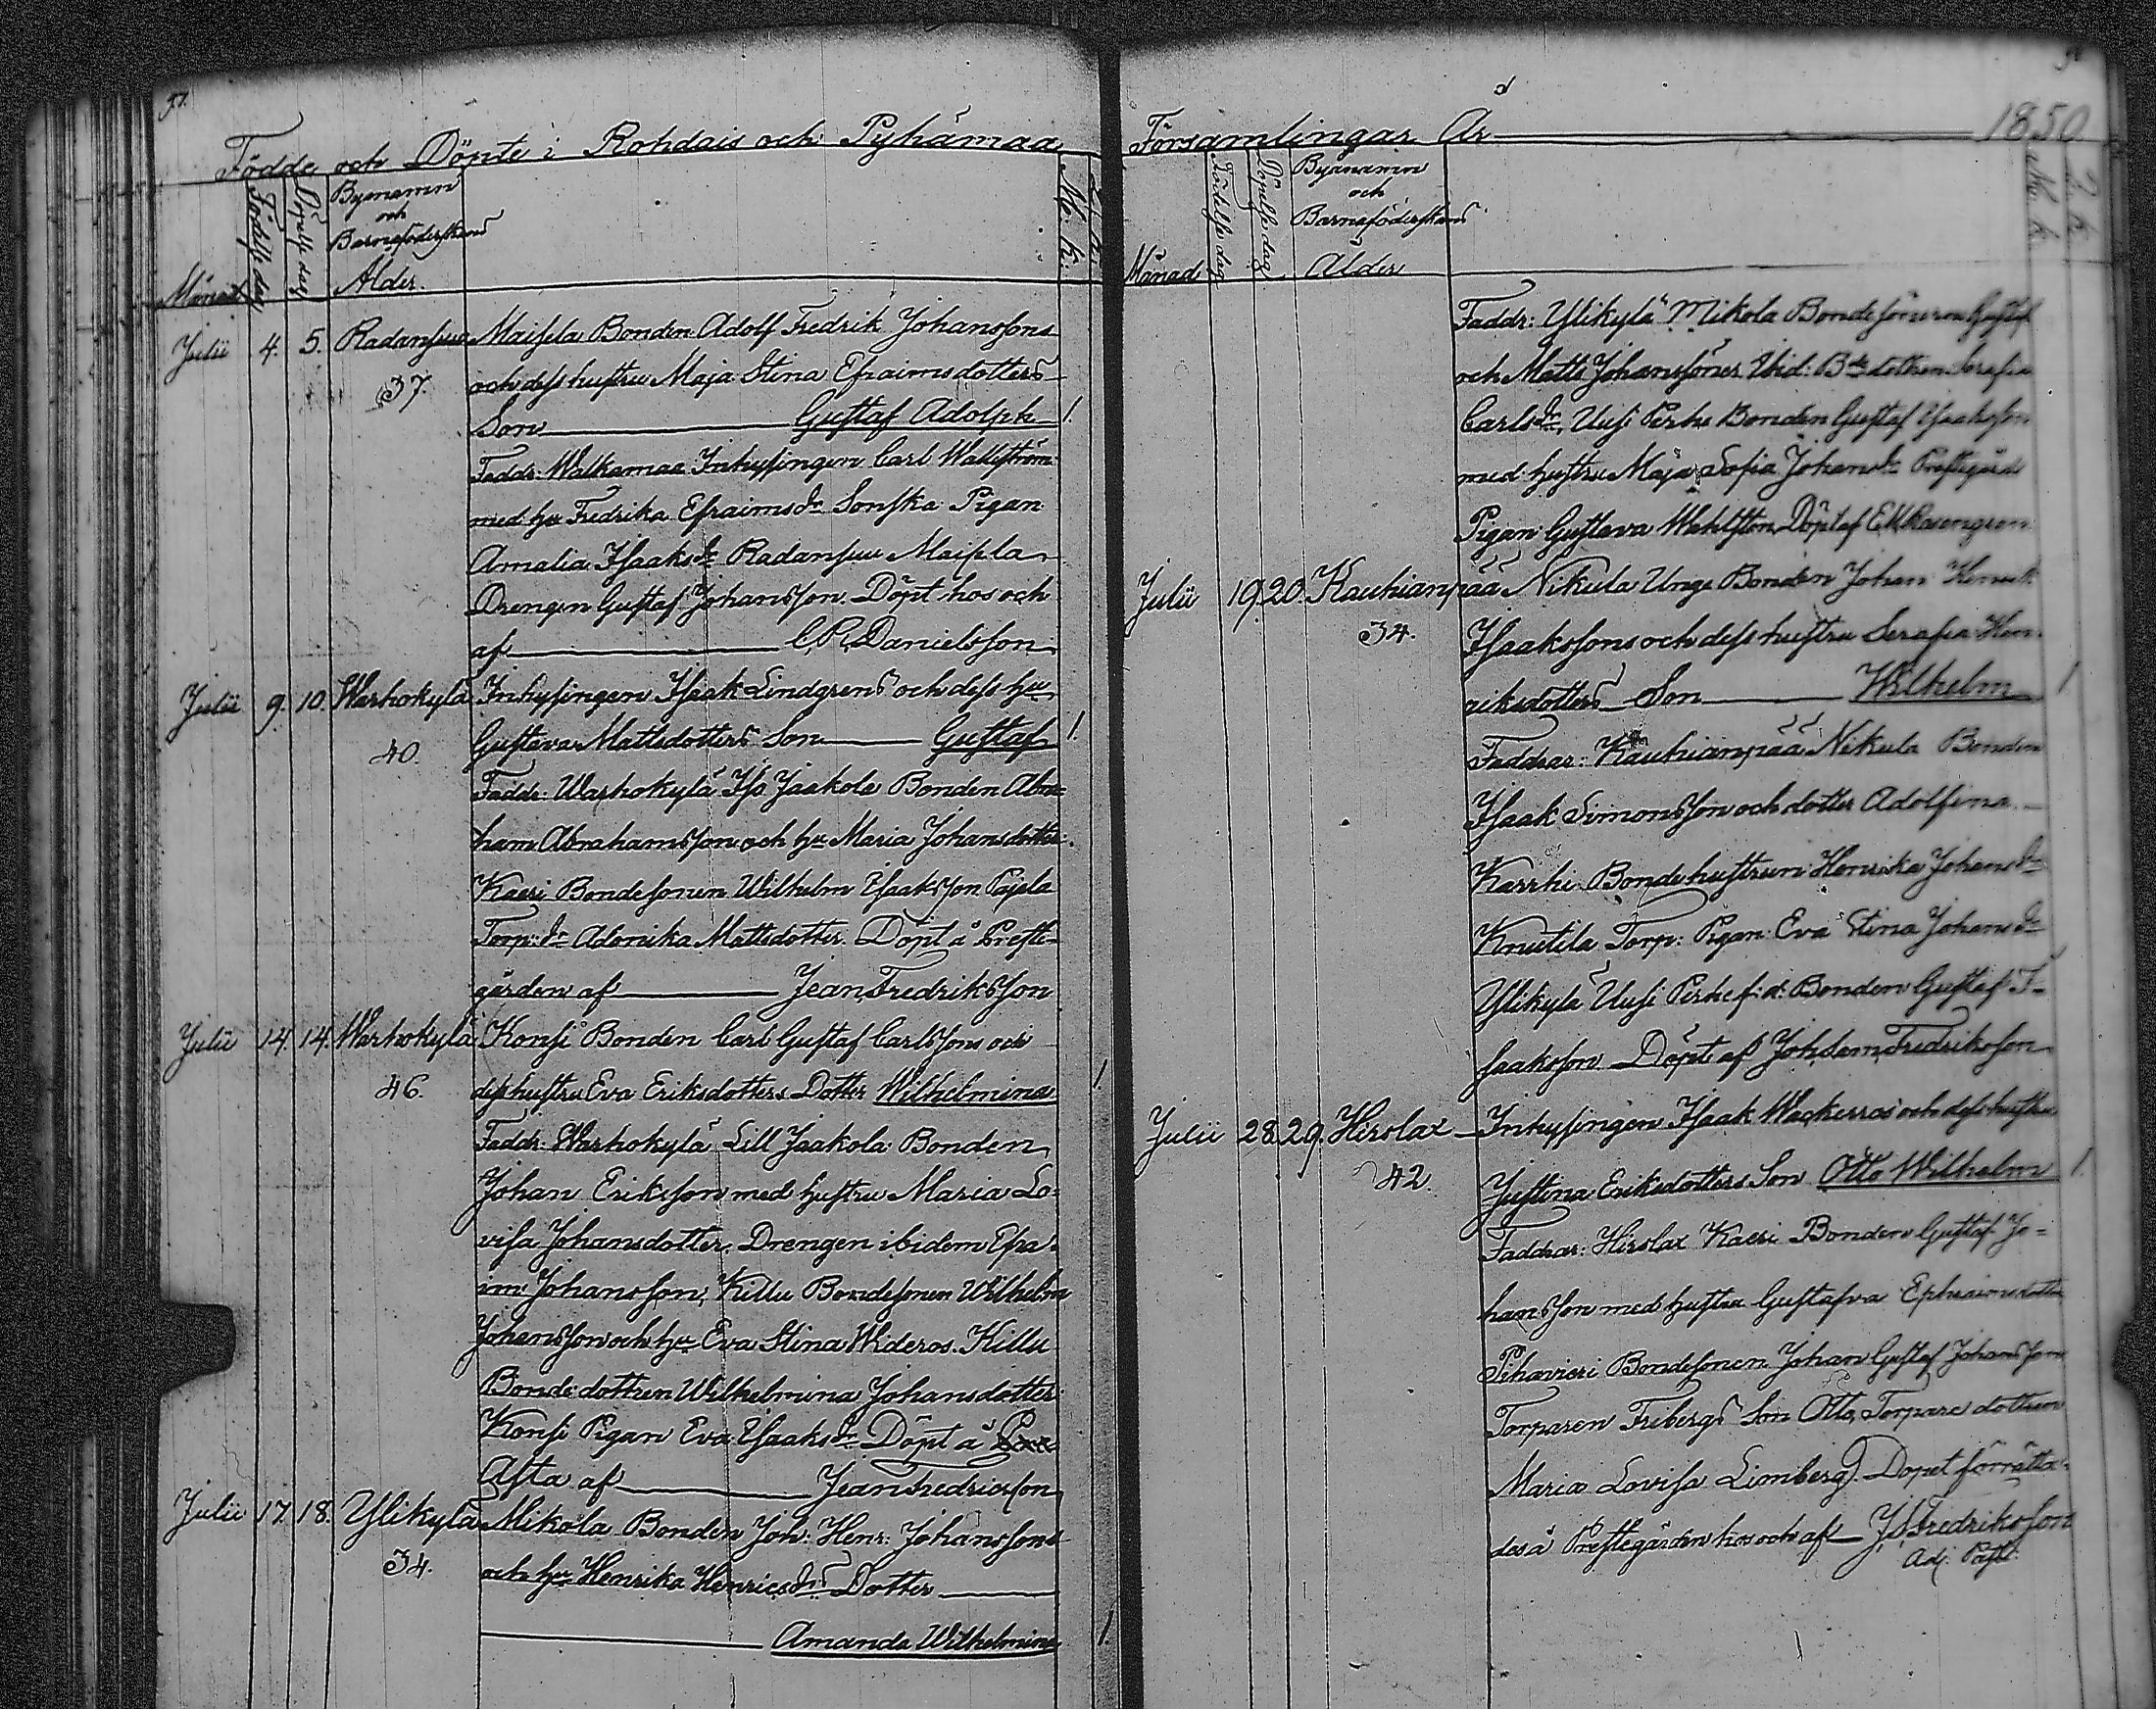 57.
Födde och Döpte i Rohdais och Pyhämaa
Månad
Födelse dag
Döpelse dag
Bynamn
och
Barnaföderskans
Ålder.
M. k.
Q. k.
Julii 4. 5. Radansuu Maisela Bonden Adolf Fredrik Johanssons
37. och dess hustru Maja Stina Efraimsdotters
Son Gustaf Adolph 1.
Faddr: Walkamaa Inhysingen Carl Wallström
med hu Fredrika Efraimsdr Sonska Pigan
Amalia Isaksdr Radansuu Maisela
Drengen Gustaf Johansson. Döpt hos och
af C. R. Danielsson
Julii 9. 10. Warhokylä Inhysingen Isaak Lindgrens och dess hu
40. Gustava Mattsdotters Son Gustaf 1.
Faddr: Warhokylä Iso Jaakola Bonden Abra-
ham Abrahamsson och hu Maria Johansdotter.
Kaeri Bondesonen Wilhelm Isaaksson Pajela
Torp: dr Adonika Mattsdotter. Döpt å Preste-
gården af Jean Fredriksson
Julii 14. 14. Warhokylä Konsi Bonden Carl Gustaf Carlssons och
46. dess hustru Eva Eriksdotters Dotter Wilhelmina 1
Faddr: Warhokylä Lill Jaakola Bonden
Johan Eriksson med hustru Maria Lo-
visa Johansdotter. Drengen ibidem Efra-
im Johansson, Killu Bondesonen Wilhelm
Johansson och hu Eva Stina Wideros. Killu
Bondedottren Wilhelmina Johansdotter
Konsi Pigan Eva Isaaksdr Döpt å
Asta af Jean Fredricsson
Julii 17. 18. Ylikylä Mikola Bonden Joh: Henr: Johanssons
34. och hu Henrika Henricsdrs Dotter
Amanda Wilhelmina 1.
Församlingar År 1850
Månad
Födelse dag
Döpelse dag
Bynamn
och
Barnaföderskans
Ålder
M. k.
Q. k.
Faddr: Ylikylä Mikola Bondesönerna Gustaf
och Matts Johanssöner Ibid: Bde dottren Serafia
Carlsdr, Uusi Perhe Bonden Gustaf Isaaksson
med hustru Maja Sofia Johansdr Prestegårds
Pigan Gustava Wahlsten Döpt af E M Rosengren
Julii 19. 20. Kauhianpää Nikula Unge Bonden Johan Henrik
34. Isaakssons och dess hustru Serafia Hen-
riksdotters Son Wilhelm 1
Faddrar: Kauhianpää Nikula Bonden
Isaak Simonsson och dotter Adolfina
Karrhi Bondehustrun Henrika Johansdr
Knutila Torp: Pigan Eva Stina Johansdr
Ylikylä Uusi Perhe f:d: Bonden Gustaf I-
saaksson Döpt af Joh:s Fredriksson
Julii 28. 29. Hirslax Inhysingen Isaak Wackerros och dess hustru
42. Justina Eriksdotters Son Otto Wilhelm 1
Faddrar: Hirslax Kaeri Bonden Gustaf Jo-
hansson med hustru Gustafva Ephraimsdotter
Pihavieri Bondesonen Johan Gustaf Johansson
Torparen Fribergs Son Otto, Torpare dottren
Maria Lovisa Limberg. Dopet förrätta-
des å Prestegården hos och af J. Fredriksson
Adj. Past: